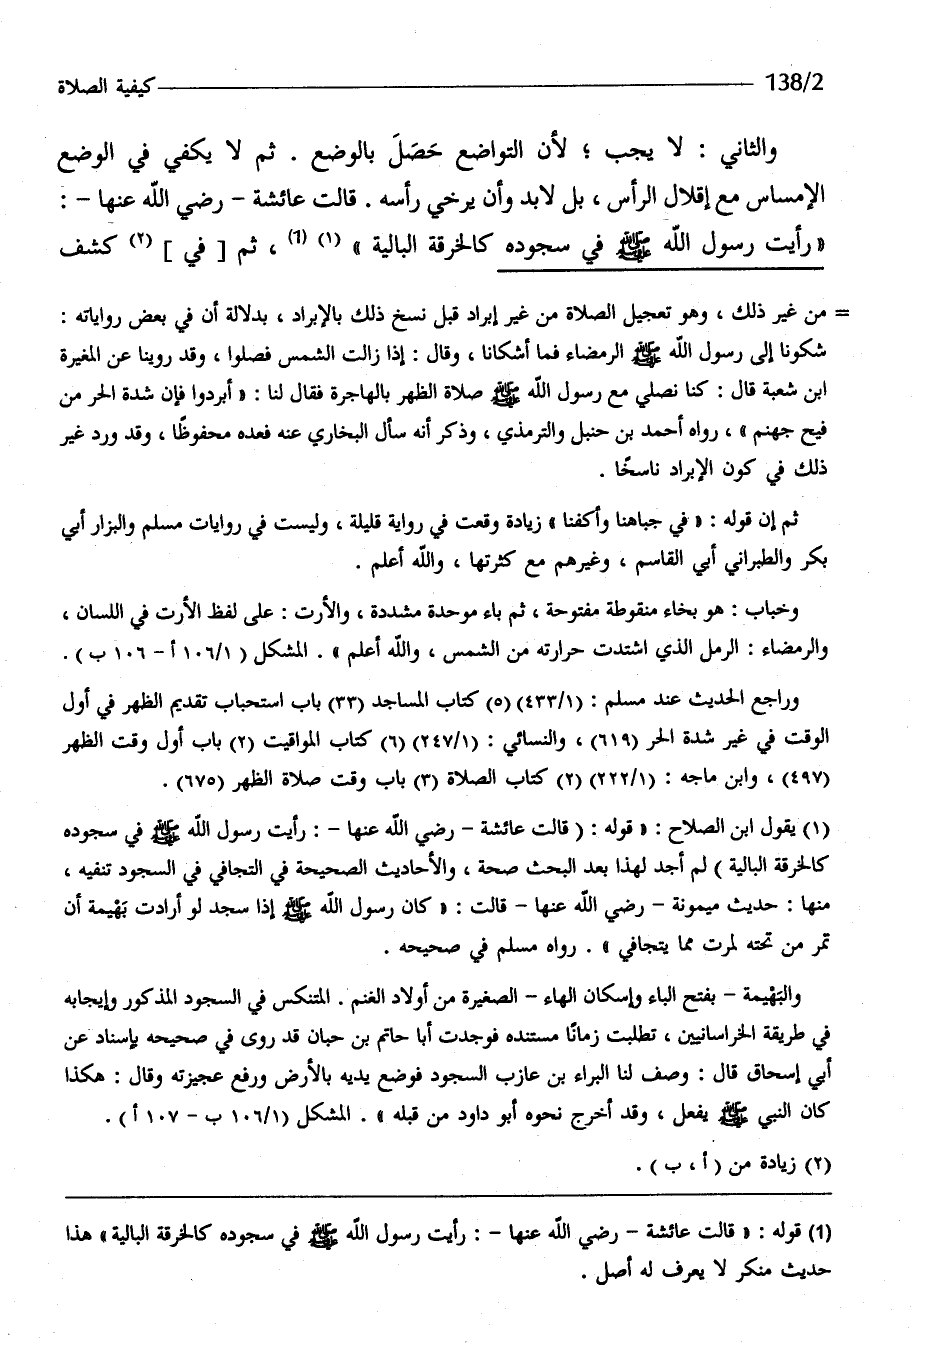 138/2 كيفية الصلاة
والثاني : لا يجب ؛ لأن التواضع حَصَلَ بالوضع . ثم لا يكفي في الوضع
الإمساس مع إقلال الرأس ، بل لابد وأن يرخي رأسه . قالت عائشة - رضي الله عنها - :
« رأيت رسول الله ﷺ في سجوده كالخرقة البالية » (١) (1) ، ثم [ في ] (٢) كشف
= من غير ذلك ، وهو تعجيل الصلاة من غير إبراد قبل نسخ ذلك بالإبراد ، بدلالة أن في بعض رواياته :
شكونا إلى رسول الله ﷺ الرمضاء فما أشكانا ، وقال : إذا زالت الشمس فصلوا ، وقد روينا عن المغيرة
ابن شعبة قال : كنا نصلي مع رسول الله ﷺ صلاة الظهر بالهاجرة فقال لنا : « أبردوا فإن شدة الحر من
فيح جهنم » ، رواه أحمد بن حنبل والترمذي ، وذكر أنه سأل البخاري عنه فعده محفوظًا ، وقد ورد غير
ذلك في كون الإبراد ناسخًا .
ثم إن قوله : « في جباهنا وأكفنا » زيادة وقعت في رواية قليلة ، وليست في روايات مسلم والبزار أبي
بكر والطبراني أبي القاسم ، وغيرهم مع كثرتها ، والله أعلم .
وخباب : هو بخاء منقوطة مفتوحة ، ثم باء موحدة مشددة ، والأرت : على لفظ الأرت في اللسان ،
والرمضاء : الرمل الذي اشتدت حرارته من الشمس ، والله أعلم » . المشكل ( ١٠٦/١ أ - ١٠٦ ب ) .
وراجع الحديث عند مسلم : (٤٣٣/١) (٥) كتاب المساجد (٣٣) باب استحباب تقديم الظهر في أول
الوقت في غير شدة الحر (٦١٩) ، والنسائي : (٢٤٧/١) (٦) كتاب المواقيت (٢) باب أول وقت الظهر
(٤٩٧) ، وابن ماجه : (٢٢٢/١) (٢) كتاب الصلاة (٣) باب وقت صلاة الظهر (٦٧٥) .
(١) يقول ابن الصلاح : « قوله : ( قالت عائشة - رضي الله عنها - : رأيت رسول الله ﷺ في سجوده
كالخرقة البالية ) لم أجد لهذا بعد البحث صحة ، والأحاديث الصحيحة في التجافي في السجود تنفيه ،
منها : حديث ميمونة - رضي الله عنها - قالت : « كان رسول الله ﷺ إذا سجد لو أرادت بَهْيمة أن
تمر من تحته لمرت مما يتجافي » . رواه مسلم في صحيحه .
والبَهْيمة - بفتح الباء وإسكان الهاء - الصغيرة من أولاد الغنم . المتنكس في السجود المذكور وإيجابه
في طريقة الخراسانيين ، تطلبت زمانًا مستنده فوجدت أبا حاتم بن حبان قد روى في صحيحه بإسناد عن
أبي إسحاق قال : وصف لنا البراء بن عازب السجود فوضع يديه بالأرض ورفع عجيزته وقال : هكذا
كان النبي ﷺ يفعل ، وقد أخرج نحوه أبو داود من قبله » . المشكل (١٠٦/١ ب - ١٠٧ أ ) .
(٢) زيادة من ( أ ، ب ) .
(1) قوله : « قالت عائشة - رضي الله عنها - : رأيت رسول الله ﷺ في سجوده كالخرقة البالية » هذا
حديث منكر لا يعرف له أصل .